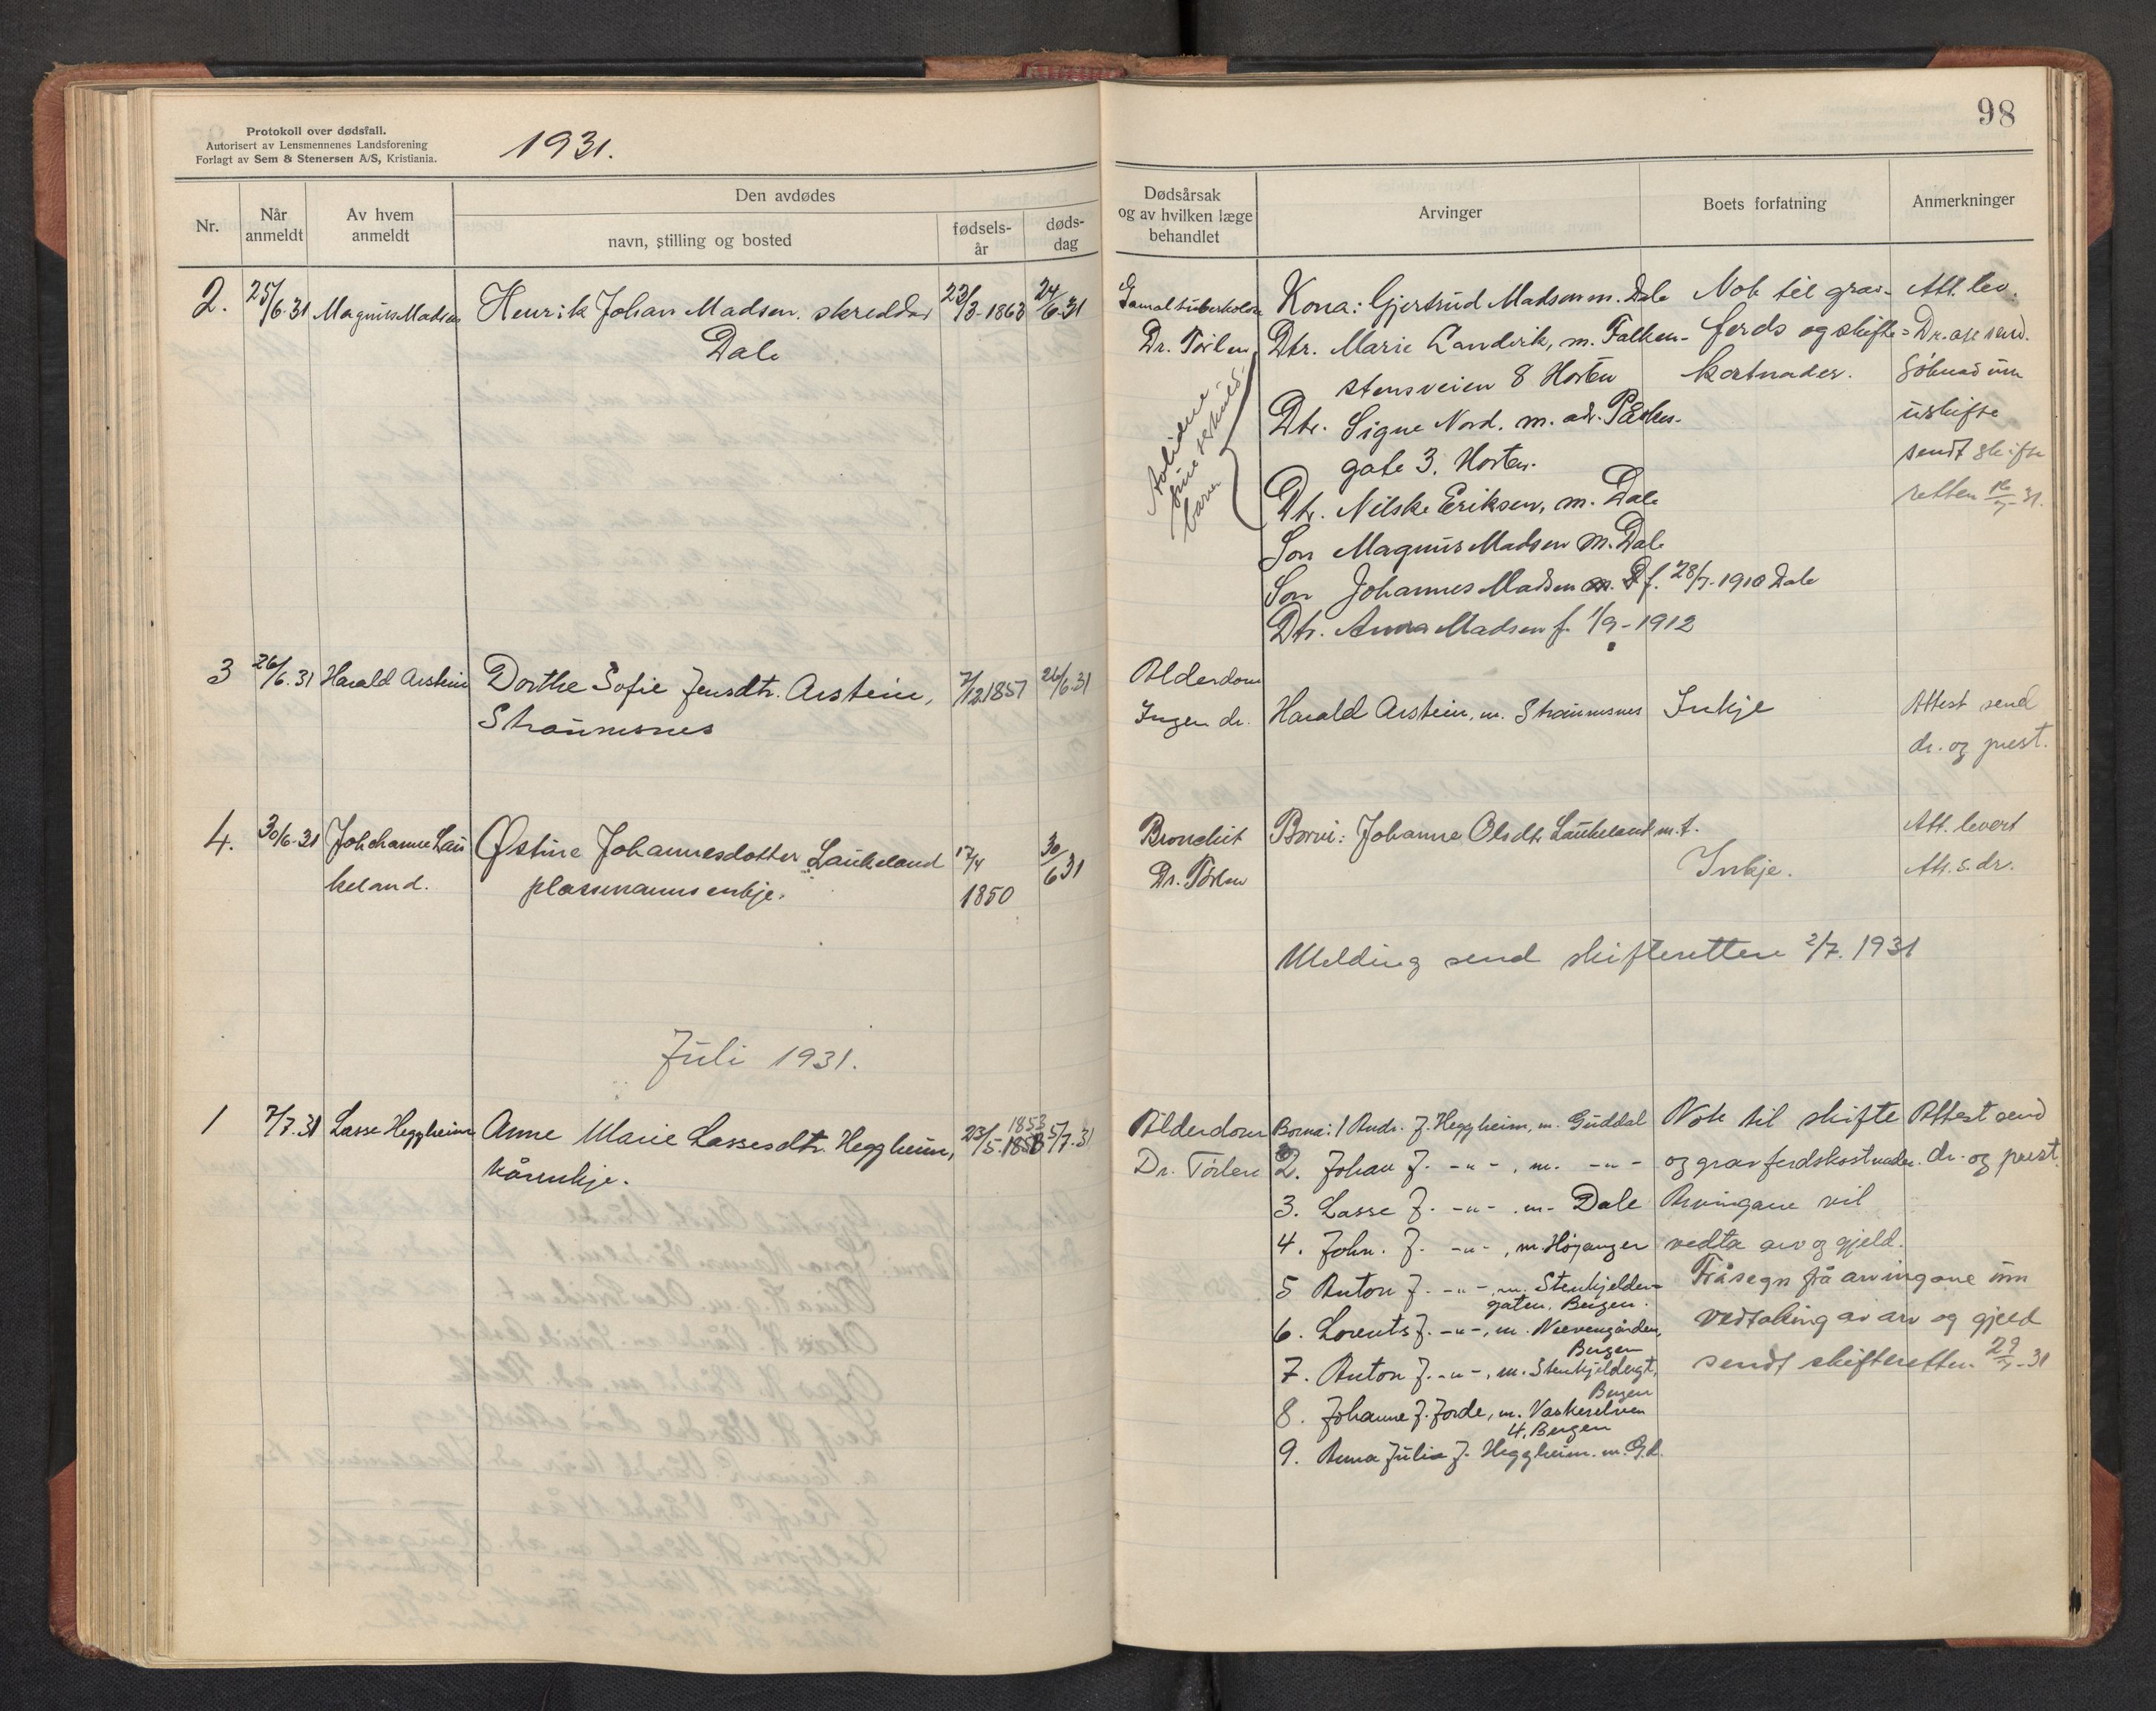 Protokoll over dødsfall.
Autorisert av Lensmennenes Landsforening
Forlagt av Sem & Stenersen A/S, Kristiania.
1931.
98
Nr.
Når anmeldt
Av hvem anmeldt
Den avdødes
navn, stilling og bosted
fødsels-
år
døds-
dag
Dødsårsak
og av hvilken læge
behandlet
Arvinger
Boets forfatning
Anmerkninger
2. 25/6.31 Magnus Madsen Henrik Johan Madsen, skreddar 23/3-1863 24/6-31
Dale
Gamal tuberkolose
Dr. Tørlen
Kona: Gjertrud Madsen m. Dale
Dtr. Marie Landvik, m. Falken-
stensveien 8 Horten
Dtr. Signe Nord. m. adr.
gate 3. Horten.
Dtr. Nilske Eriksen, m. Dale
Son Magnus Madsen m. Dale
Son Johannes Madsen f. 28/7-1910 Dale
Dtr. Anna Madsen f. 1/9-1912
barn
Nok til grav-
ferds og skifte-
kostnader.
Att. lev.
Søknad um
uskifte
sendt skifte
retten
3 26/6.31 Harald Arstein Dorthe Sofie Jensdtr. Arstein, 7/12 1857 26/6.31
Straumsnes
Alderdom
Ingen dr.
Harald Arstein, m. Straumsnes
Inkje
Attest send
dr. og prest.
4. 30/6-31 Johanne Lau
keland.
Østine Johannesdotter Laukeland
plassmannsenkje.
17/4
1850
30/6 31
Bronchit
Dr. Tørlen
Borni: Johanne Olsdtr. Laukeland m. f.
Inkje.
Att. levert
Att. s. dr.
Melding send skifteretten 2/7. 1931
Juli 1931.
1 7/7.31 Lasse Heggheim Anne Marie Lassesdtr. Heggheim, 23/5. 1853 5/7.31
kårenkje.
Alderdom
Dr. Tørlen
Borna: 1 Andr. J. Heggheim, m. Guddal
2. Johan J. -"- , m. -"-
3. Lasse J. -"- . m- Dale
4. John. J. -"- , m. Høyanger
5 Anton J. -"- , m. Stenkjelder-
gaten, Bergen.
6. Lorents J. -"-, m. Nævengården,
Bergen
7. Anton J. -"-, m. Stenkjeldergt,
Bergen
8. Johanne J. Forde, m. Vaskerelven
4, Bergen
9. Anna Julia J. Heggheim. m. G.d.
Nok til skifte
og gravferdskostnader.
Arvingane vil
vedta arv og gjeld.
Fråsegn frå arvingane um
vedtaking av arv og gjeld
sendt skifteretten 29/7-31
Attest send
dr. og prest.